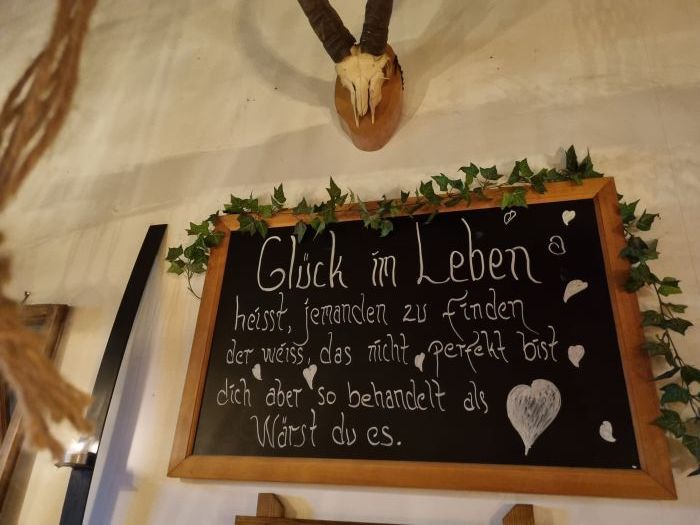 Glück im Leben
heisst, jemanden zu finden
der weiss, das nicht perfekt bist
dich aber so behandelt als
Wärst du es.